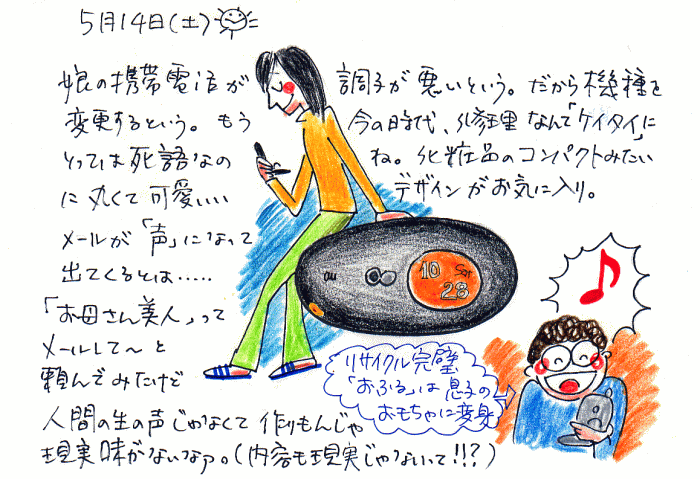 5月14日(土)
娘の携帯電話が 調子が悪いという。だから機種を
変更するという。もう 今の時代、修理なんて「ケイタイ」に
とっては死語なの ね。化粧品のコンパクトみたい
に丸くて可愛いい デザインがお気に入り。
メールが「声」になって
出てくるとは……
「お母さん美人」って
メールして〜と
頼んでみたけど
人間の生の声じゃなくて作りもんじゃ
現実味がないなァ。(内容も現実じゃないって!!?)
au
10 Sat
28
リサイクル完璧
「おふる」は息子の
おもちゃに変身